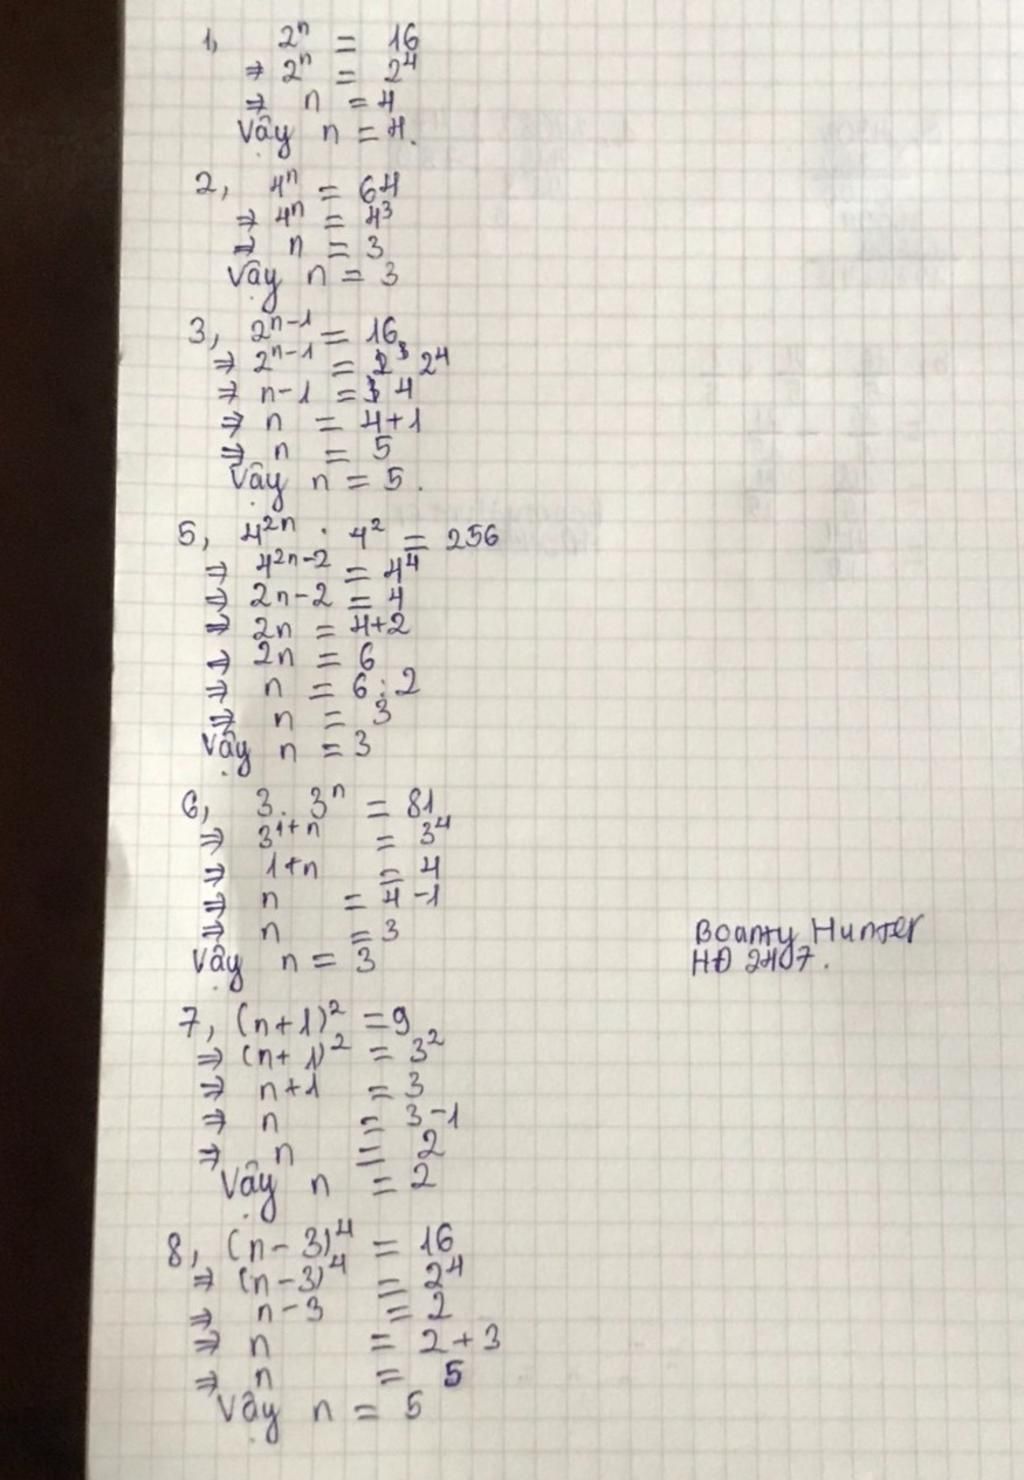 1, 2ⁿ = 16
⇒ 2ⁿ = 2⁴
⇒ n = 4
Vậy n = 4.
2, 4ⁿ = 64
⇒ 4ⁿ = 4³
⇒ n = 3
Vậy n = 3
3, 2ⁿ⁻¹ = 16
⇒ 2ⁿ⁻¹ = 2⁴
⇒ n-1 = 4
⇒ n = 4+1
⇒ n = 5
Vậy n = 5.
5, 4²ⁿ . 4² = 256
⇒ 4²ⁿ⁻² = 4⁴
⇒ 2n-2 = 4
⇒ 2n = 4+2
⇒ 2n = 6
⇒ n = 6:2
⇒ n = 3
Vậy n = 3
6, 3. 3ⁿ = 81
⇒ 3¹⁺ⁿ = 3⁴
⇒ 1+n = 4
⇒ n = 4-1
⇒ n = 3
Vậy n = 3
Bounty Hunter
HĐ 2407.
7, (n+1)² = 9
⇒ (n+1)² = 3²
⇒ n+1 = 3
⇒ n = 3-1
⇒ n = 2
Vậy n = 2
8, (n-3)⁴ = 16
⇒ (n-3)⁴ = 2⁴
⇒ n-3 = 2
⇒ n = 2+3
⇒ n = 5
Vậy n = 5